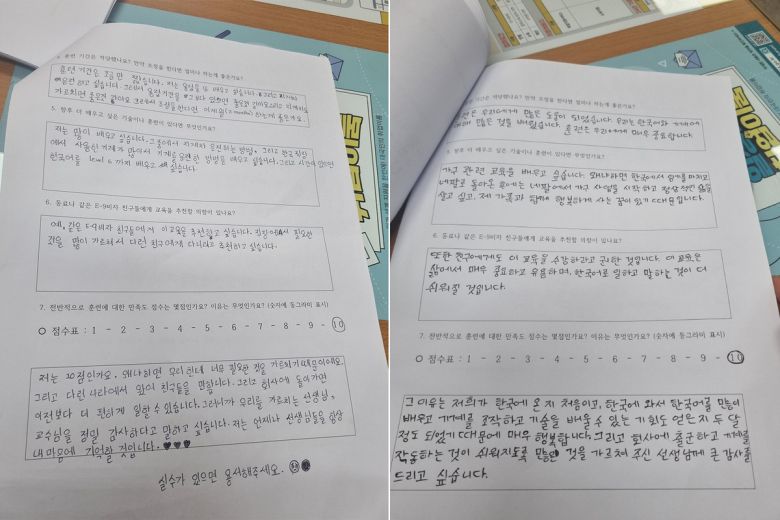 4. 훈련 기간은 적당했나요? 만약 조정을 한다면 얼마나 하는게 좋은가요?
훈련 기간은 조금만 짧습니다. 저는 용접을 더 배우고 싶습니다.
가르치면 좋은것 같아요
5. 향후 더 배우고 싶은 기술이나 훈련이 있다면 무엇인가요?
저는 많이 배우고 싶습니다. 그중에서 지게차 운전하는 방법, 그리고 한국 회사
에서 사용한 기계가 많아서 기계를 운전한 방법을 배우고 싶습니다. 그리고 시간이 있으면
한국어를 level 6 까지 배우고 싶습니다.
6. 동료나 같은 E-9비자 친구들에게 교육을 추천할 의향이 있나요?
예, 같은 E-9비자 친구들에게 이 교육을 추천하고 싶습니다. 직장에서 필요한
것을 많이 가르쳐서 다른 친구에게 다니라고 추천하고 싶습니다.
7. 전반적으로 훈련에 대한 만족도 점수는 몇점인가요? 이유는 무엇인가요? (숫자에 동그라미 표시)
○ 점수표 : 1 - 2 - 3 - 4 - 5 - 6 - 7 - 8 - 9 - 10
저는 10점인가요. 왜냐하면 우리한테 너무 필요한 것을 가르치기 때문이에요.
그리고 다른 나라에서 있의 친구들을 만납니다. 그리고 회사에 돌아가면
이전보다 더 편하게 일할 수 있습니다. 그러니까 우리를 가르치는 선생님,
교수님을 정말 감사하다고 말하고 싶습니다. 저는 언제나 선생님들을 항상
내 마음에 기억할 것입니다. ♥♥♥
실수가 있으면 용서해주세요.
기간은 적당했나요? 만약 조정을 한다면 얼마나 하는게 좋은가요?
훈련은 우리에게 많은 도움이 되었습니다. 우리는 한국어와 기계에
대해 많은 것을 배웠습니다. 훈련은 우리에게 매우 중요합니다
5. 향후 더 배우고 싶은 기술이나 훈련이 있다면 무엇인가요?
가구 관련 교육을 배우고 싶습니다. 왜냐하면 한국에서 일기를 마치고
네팔로 돌아온 후에는 네팔에서 가구 사업을 시작하고 평생 정적인 삶을
살고 싶고, 제 가족과 함께 행복하게 사는 꿈이 있기 때문입니다.
6. 동료나 같은 E-9비자 친구들에게 교육을 추천할 의향이 있나요?
또한 친구에게도 이 교육을 수강하라고 권한 것입니다. 이 교육은
삶에서 매우 중요하고 유용하며, 한국어로 일하고 말하는 것이 더
쉬워질 것입니다.
7. 전반적으로 훈련에 대한 만족도 점수는 몇점인가요? 이유는 무엇인가요? (숫자에 동그라미 표시)
○ 점수표 : 1 - 2 - 3 - 4 - 5 - 6 - 7 - 8 - 9 - 10
그 이유는 저희가 한국에 온 지 처음이고, 한국에 와서 한국어를 많이
배우고 기계를 조작하고 기술을 배울 수 있는 기회도 얻은지 두 달
정도 되었기 때문에 매우 행복합니다. 그리고 회사에 출근하고 기계를
작동하는 것이 쉬워지도록 많은 것을 가르쳐 주신 선생님께 큰 감사를
드리고 싶습니다.